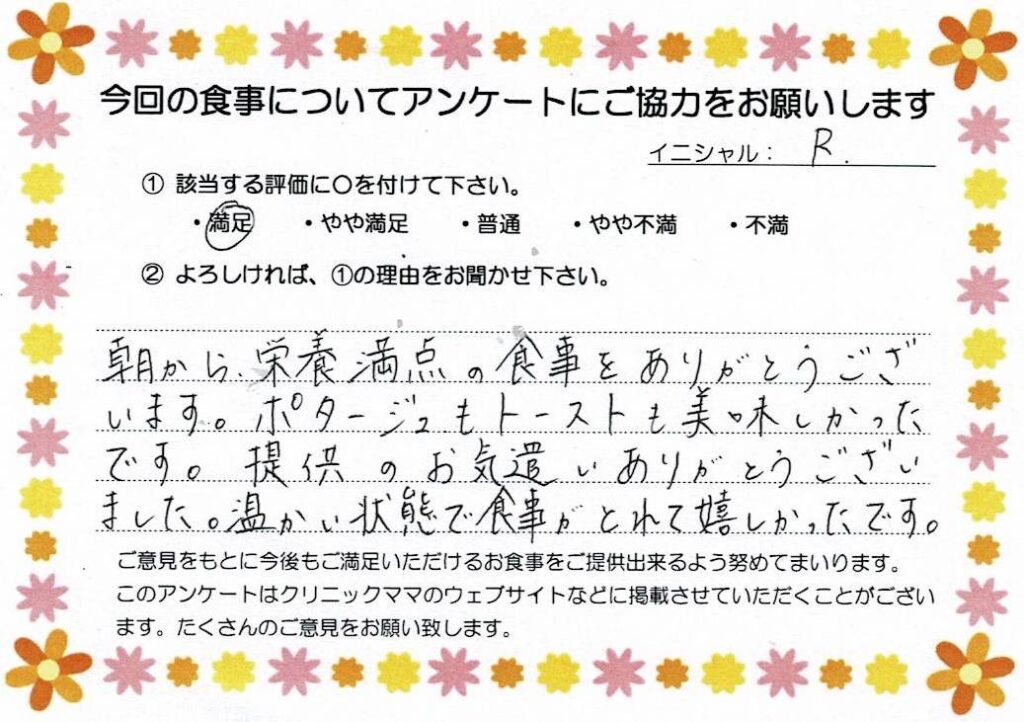 今回の食事についてアンケートにご協力をお願いします
イニシャル： R.
① 該当する評価に〇を付けて下さい。
・満足 ・やや満足 ・普通 ・やや不満 ・不満
② よろしければ、①の理由をお聞かせ下さい。
朝から、栄養満点の食事をありがとうござ
います。ポタージュもトーストも美味しかった
です。提供のお気遣いありがとうござい
ました。温かい状態で食事がとれて嬉しかったです。
ご意見をもとに今後もご満足いただけるお食事をご提供出来るよう努めてまいります。
このアンケートはクリニックママのウェブサイトなどに掲載させていただくことがござい
ます。たくさんのご意見をお願い致します。